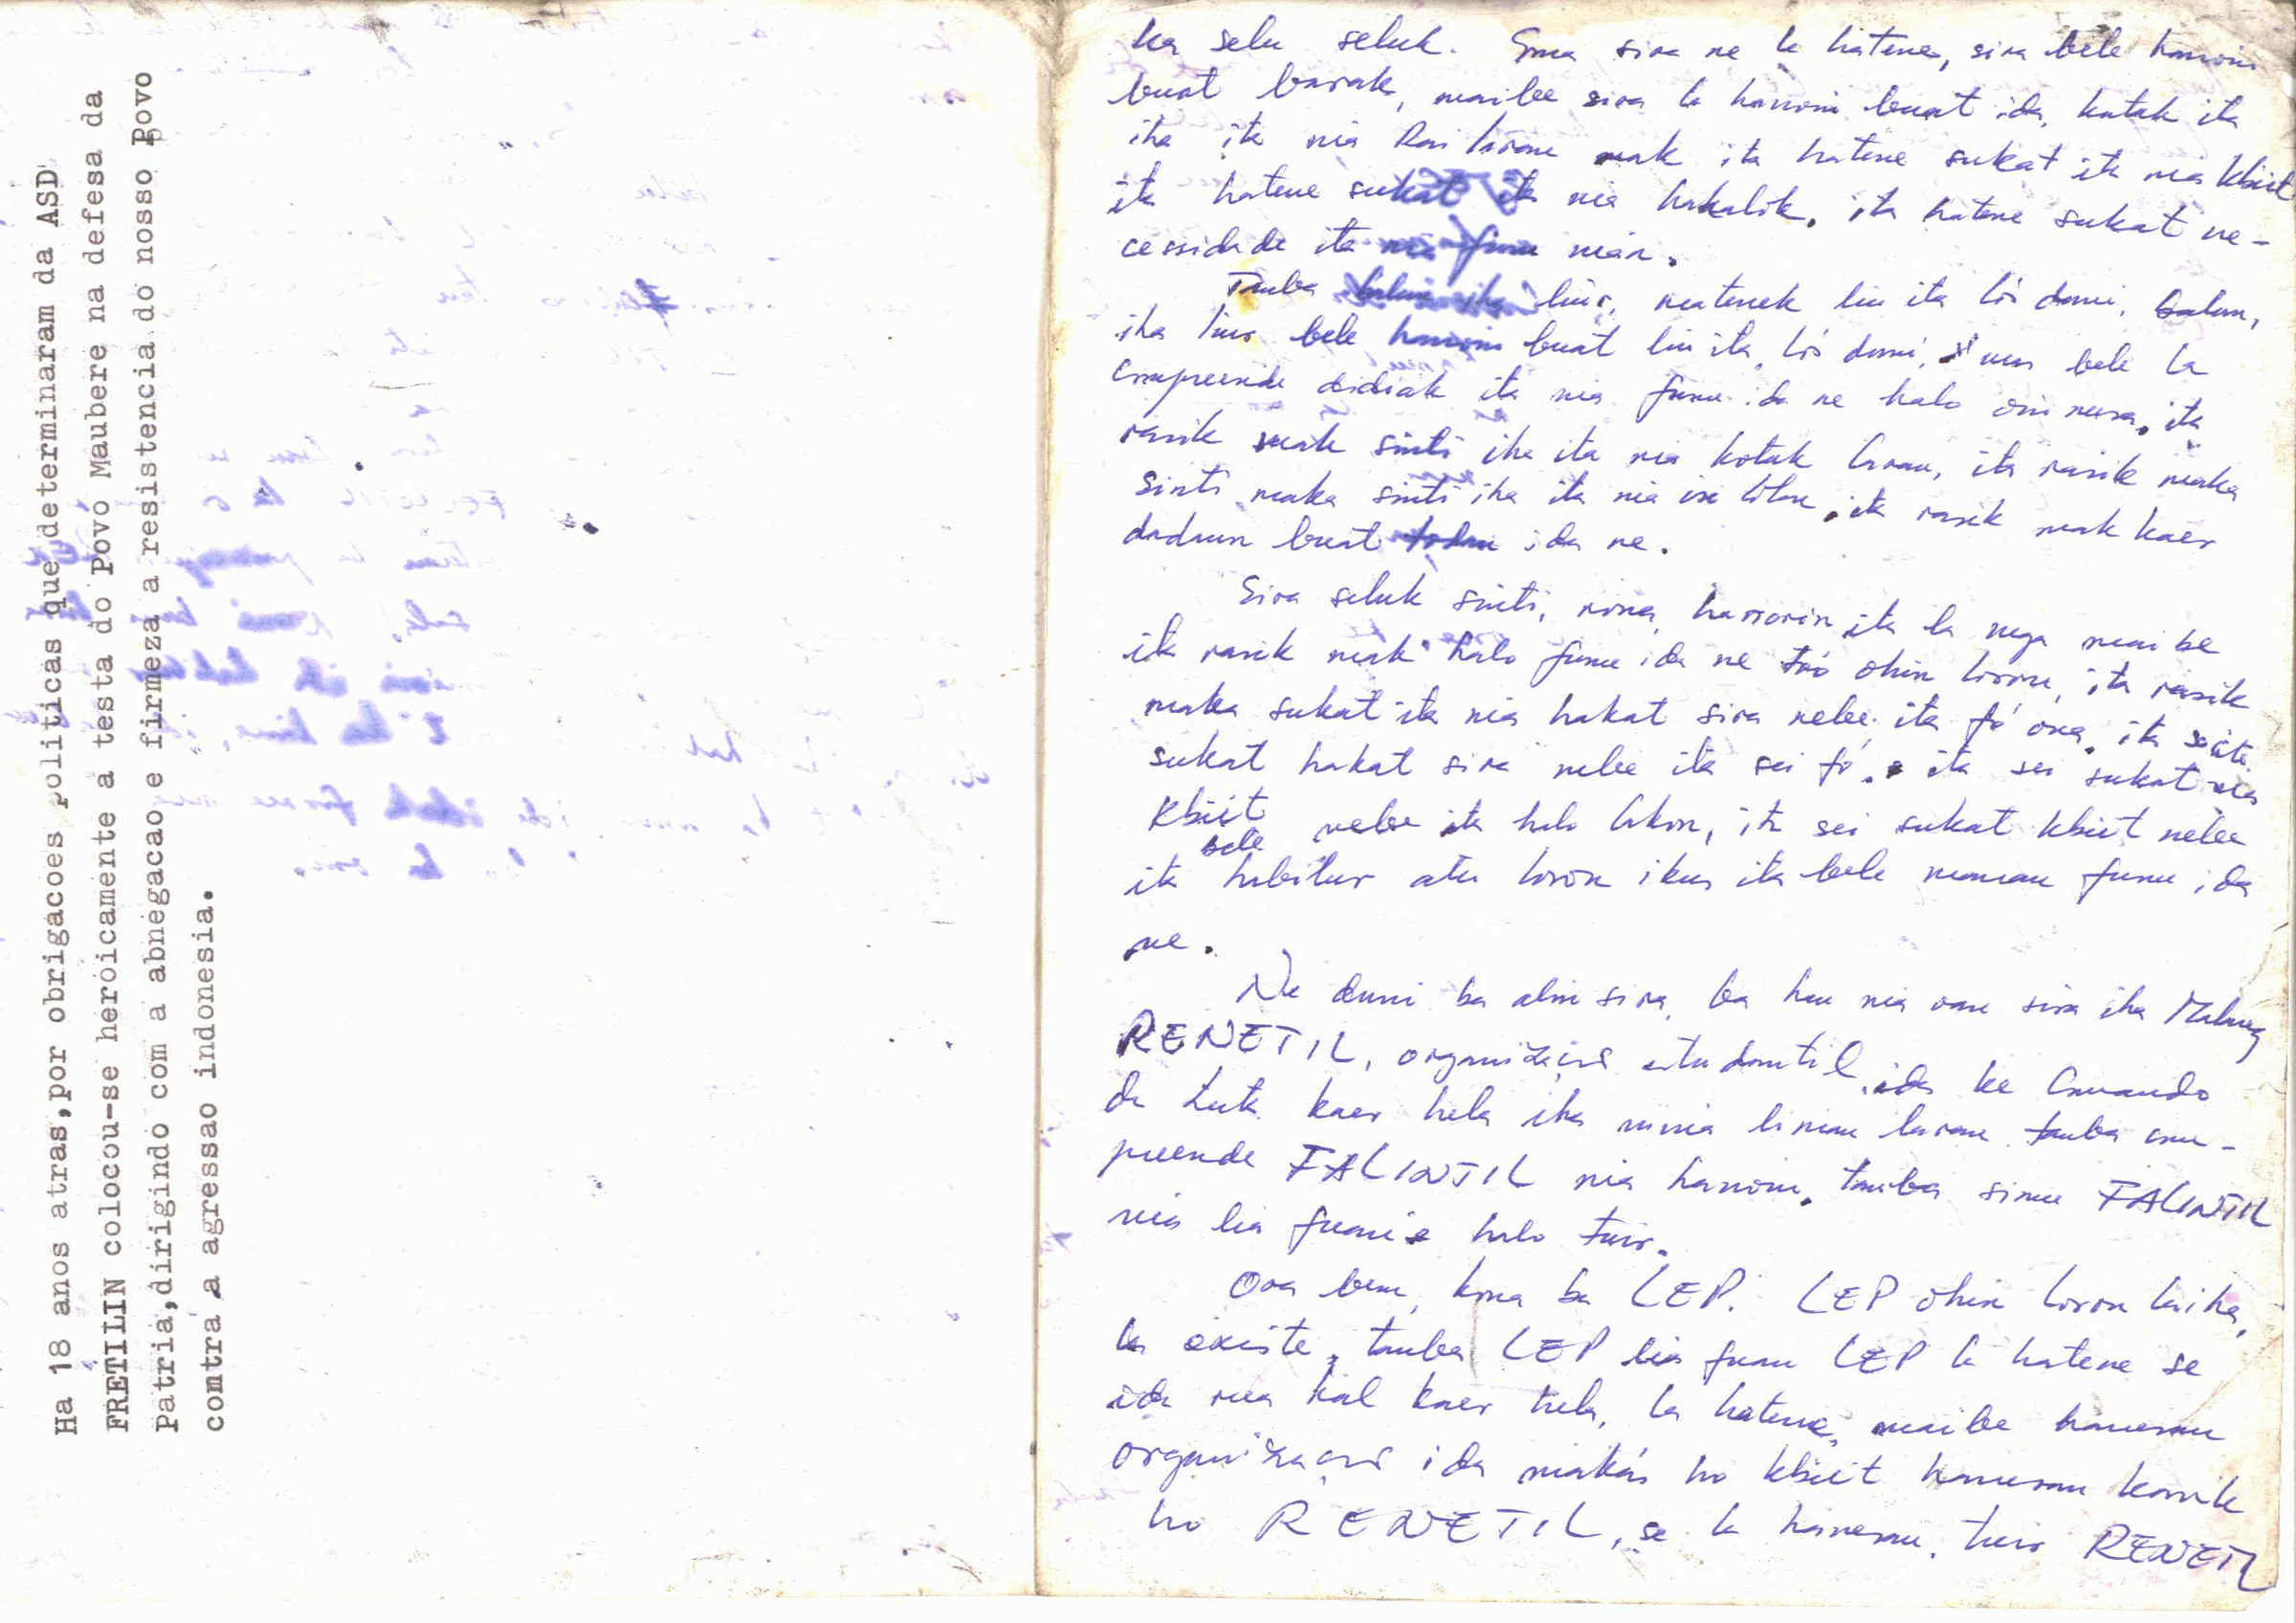 Ha 18 anos atras,por obrigacoes politicas que determinaram da ASD
FRETILIN colocou-se heroicamente a testa do Povo Maubere na defesa da
Patria,dirigindo com a abnegacao e firmeza a resistencia do nosso Povo
contra a agressao indonesia.
ka selu seluk. Ema sira ne la hatene, sira bele hanoin
buat barak, maibee sira la hanoin buat ida, katak ita
iha ita nia Rai laran mak ita hatene sukat ita nia kbiit
ita hatene sukat ita nia hakalok, ita hatene sukat ne-
cessidade ita nia funu nian.
Tanba liur, matenek liu ita lós duni, balun,
iha liur bele hanoin buat liu ita, lós duni, bele la
compreende didiak ita nia funu ida ne halo oin nusa, ita
rasik mak sinti iha ita nia kotak laran, ita rasik maka
sinti, maka sinti iha ita nia isi lolon, ita rasik mak kaer
dadaun buat todan ida ne.
Sira seluk sinti, rona, hasorin ita la nega mai be
ita rasik mak halo funu ida ne tó ohin loron, ita rasik
maka sukat ita nia hakat sira nebee ita fó ona, ita sei
sukat hakat sira nebee ita sei fó, ita sei sukat ita nia
kbiit nebee ita halo lakon, ita sei sukat kbiit nebee
ita bele habitur atu loron ikus ita bele manan funu ida
ne.
Ne duni ba alin sira, ba hau nia oan sira iha Malang
RENETIL, organização estudantil ida ke Comando
da Luta kaer hela iha ninia liman laran tanba com-
preende FALINTIL nia hanoin, tanba simu FALINTIL
nia lia fuan i halo tuir.
Ora bem, kona ba LEP. LEP ohin loron laiha,
la existe, tanba LEP lia fuan LEP la hatene se
ida rua kal kaer hela, la hatene, maibe hanesan
organização ida makás ho kbiit hanesan karik
ho RENETIL, se la hanesan, tuir RENETIL